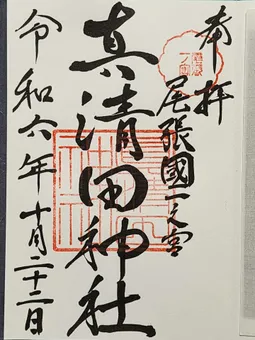 奉拝
尾張國一之宮
真清田神社
令和六年十月二十二日